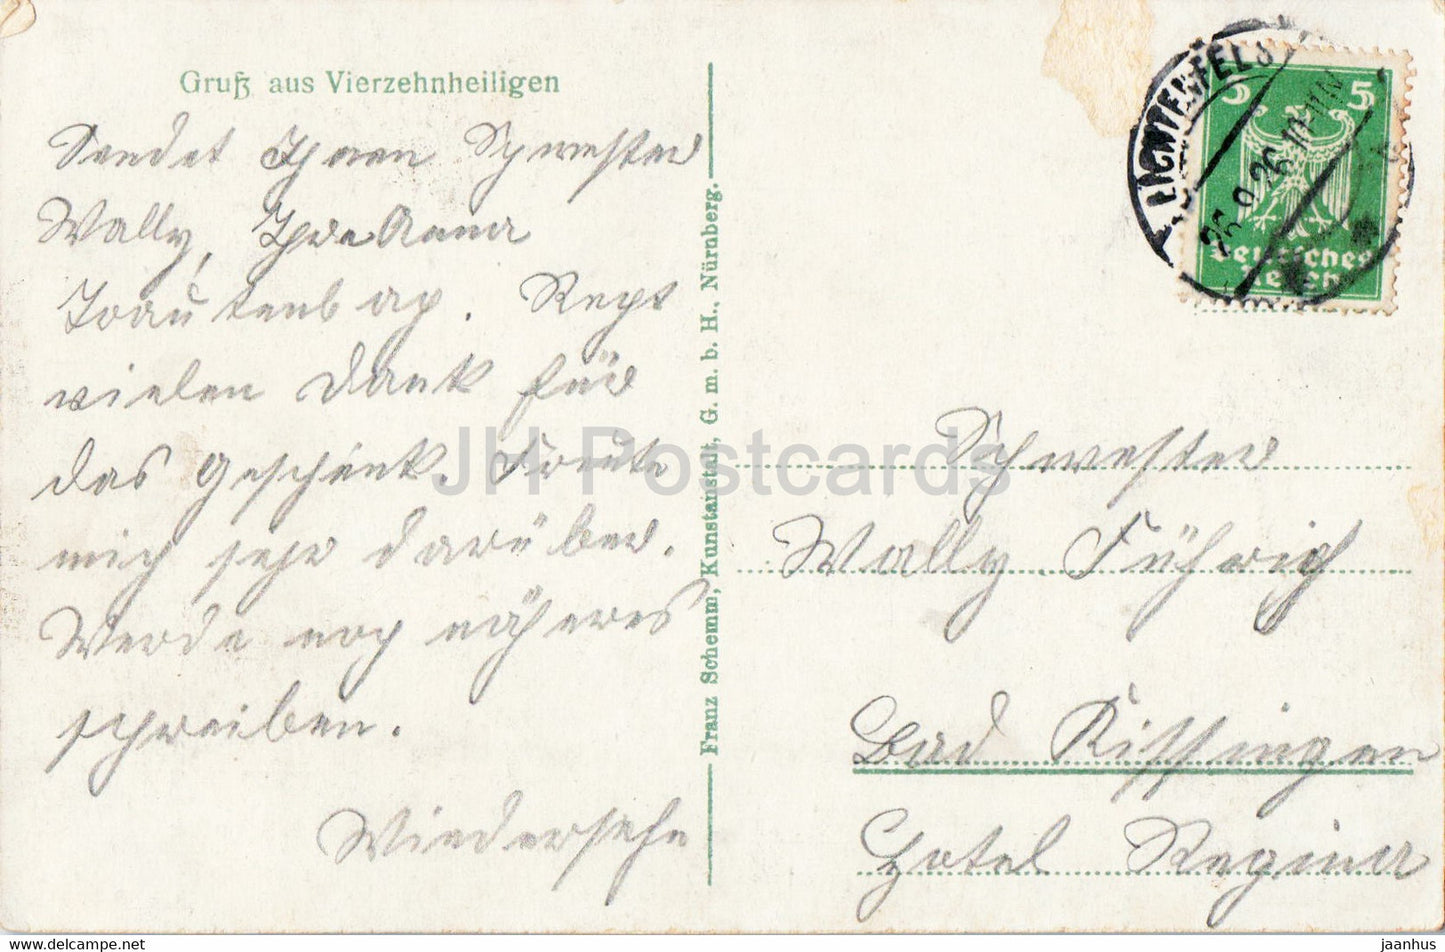 Gruß aus Vierzehnheiligen
Sendet Ihnen Schwester
Wally, Ihre Anna
Trautenbach. Recht
vielen Dank für
das Geschenk. Freute
mich sehr darüber.
Werde noch näheres
schreiben.
Wiedersehn
Franz Schemm, Kunstanstalt, G. m. b. H., Nürnberg.
LICHTENFELS
26.9.26.10-11N
5 5
Deutsches
Reich
Schwester
Wally Führich
Bad Kissingen
Hotel Regina
JH Postcards
www.delcampe.net
jaanhus